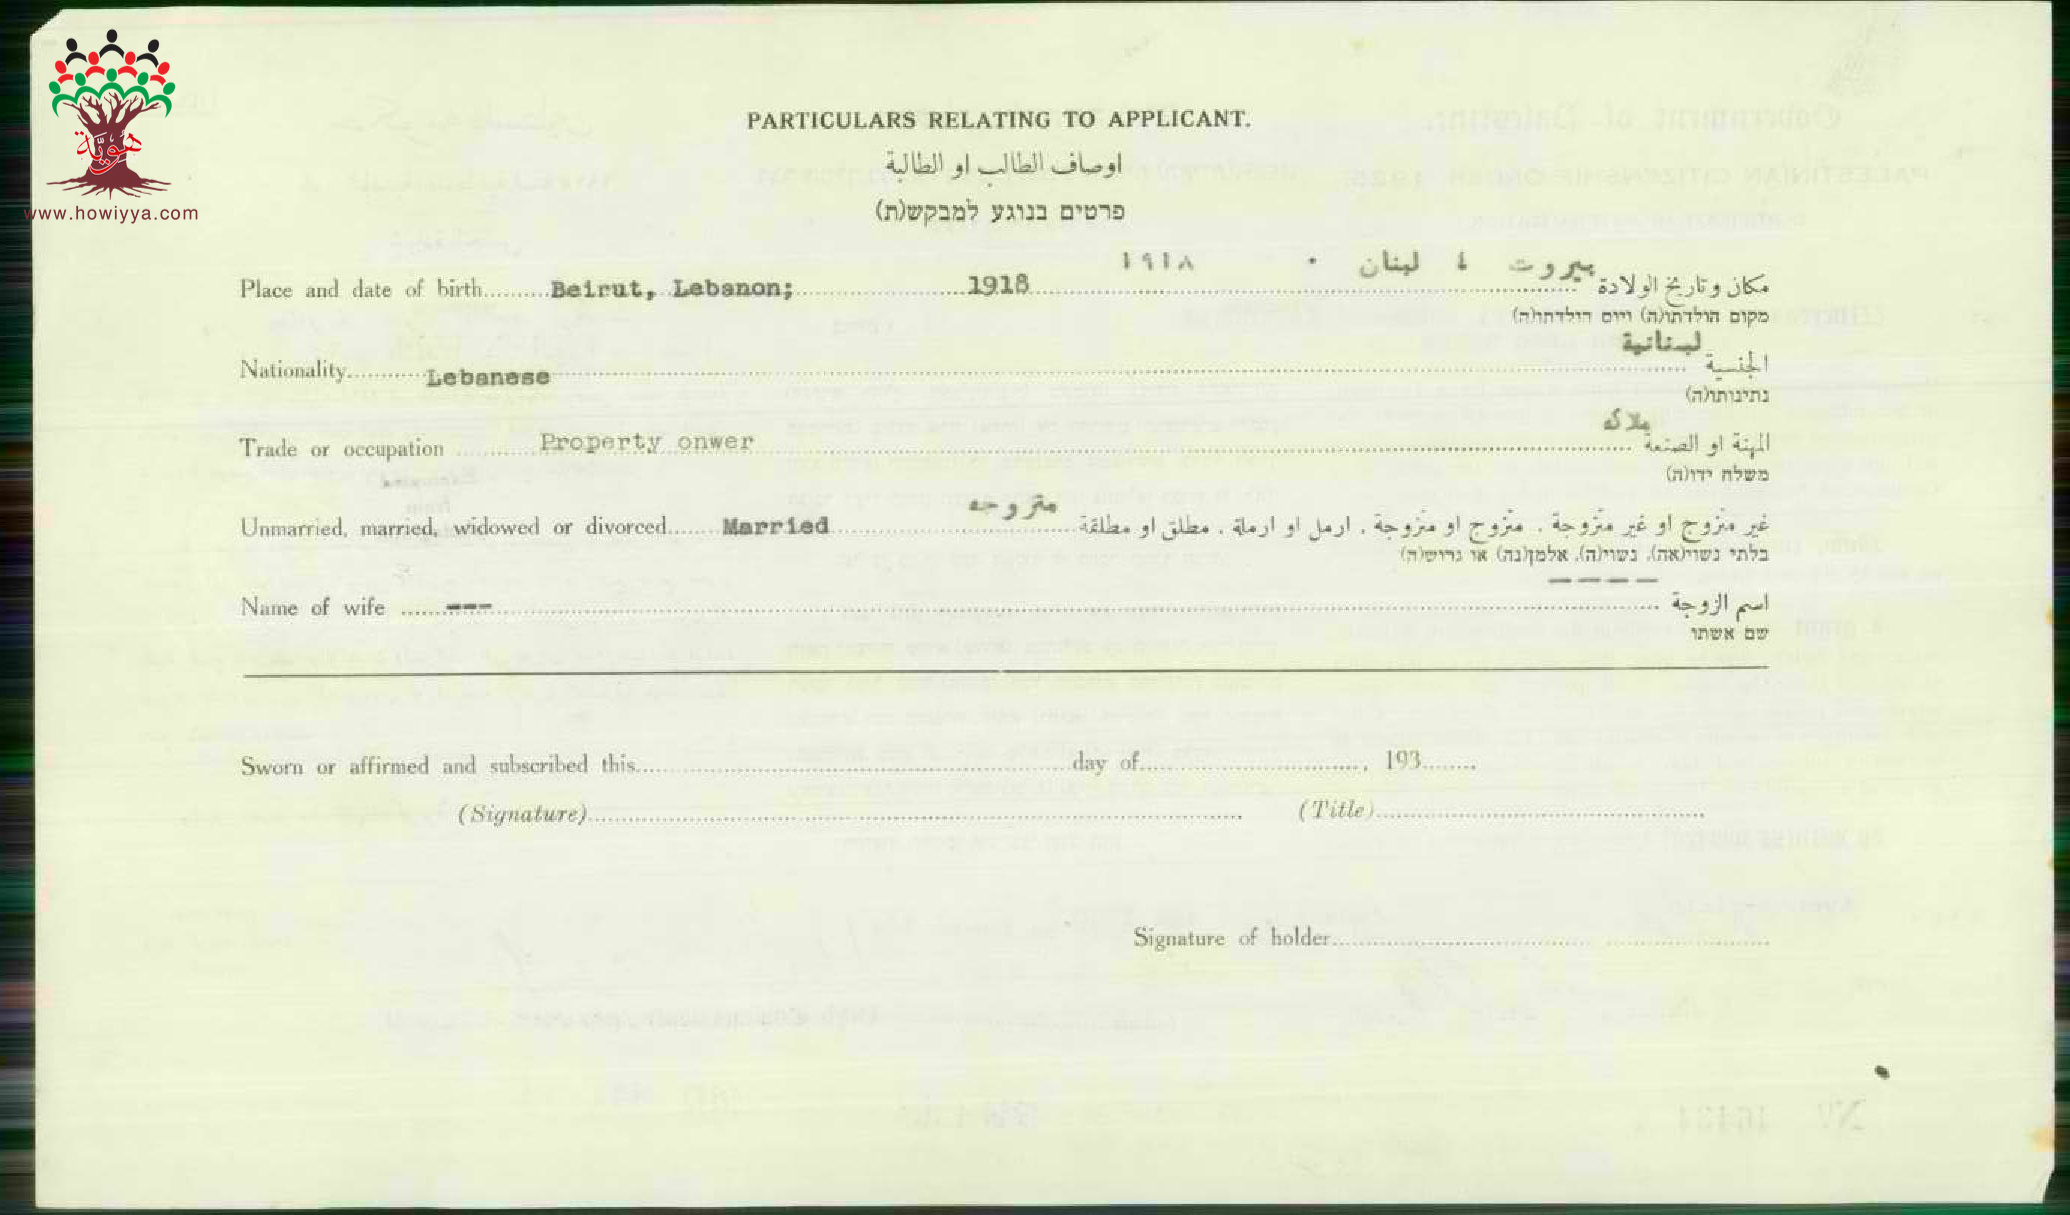 هويّة
www.howiyya.com
PARTICULARS RELATING TO APPLICANT.
اوصاف الطالب او الطالبة
פרטים בנוגע למבקש(ת)
Place and date of birth Beirut, Lebanon; 1918 ١٩١٨ . بيروت ، لبنان مكان وتاريخ الولادة
מקום הולדתו(ה) ויום הולדתו(ה)
Nationality Lebanese لبنانية الجنسية
נתינותו(ה)
Trade or occupation Property onwer ملاكه المهنة او الصنعة
משלח ידו(ה)
Unmarried, married, widowed or divorced Married متزوجه غير متزوج او غير متزوجة . متزوج او متزوجة . ارمل او ارملة . مطلق او مطلقة
בלתי נשוי(אה). נשוי(ה). אלמן(נה) או גרוש(ה)
Name of wife --- ---- اسم الزوجة
שם אשתו
Sworn or affirmed and subscribed this day of , 193
(Signature) (Title)
Signature of holder